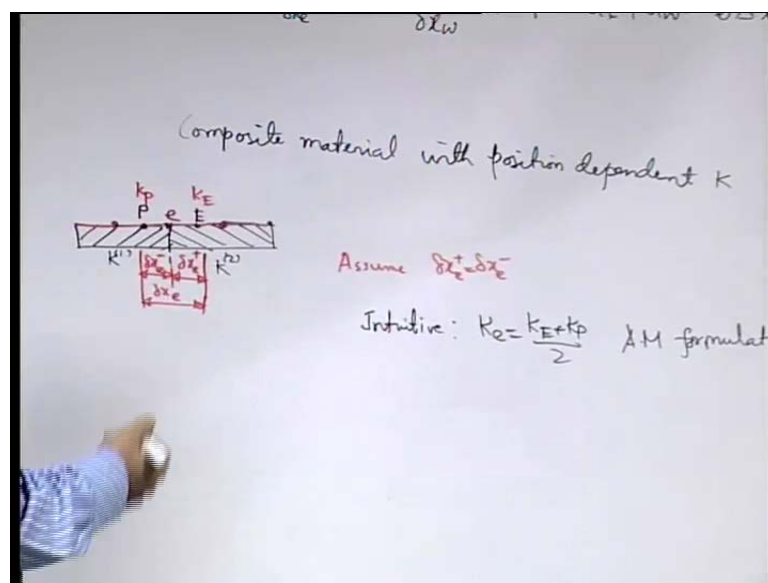 δx_w
Composite material with position dependent K
k_P k_E
P e E
K⁽¹⁾ δx_e⁻ δx_e⁺ K⁽²⁾
δx_e
Assume δx_e⁺=δx_e⁻
Intuitive: K_e = (k_E+k_P)/2 AM formulat